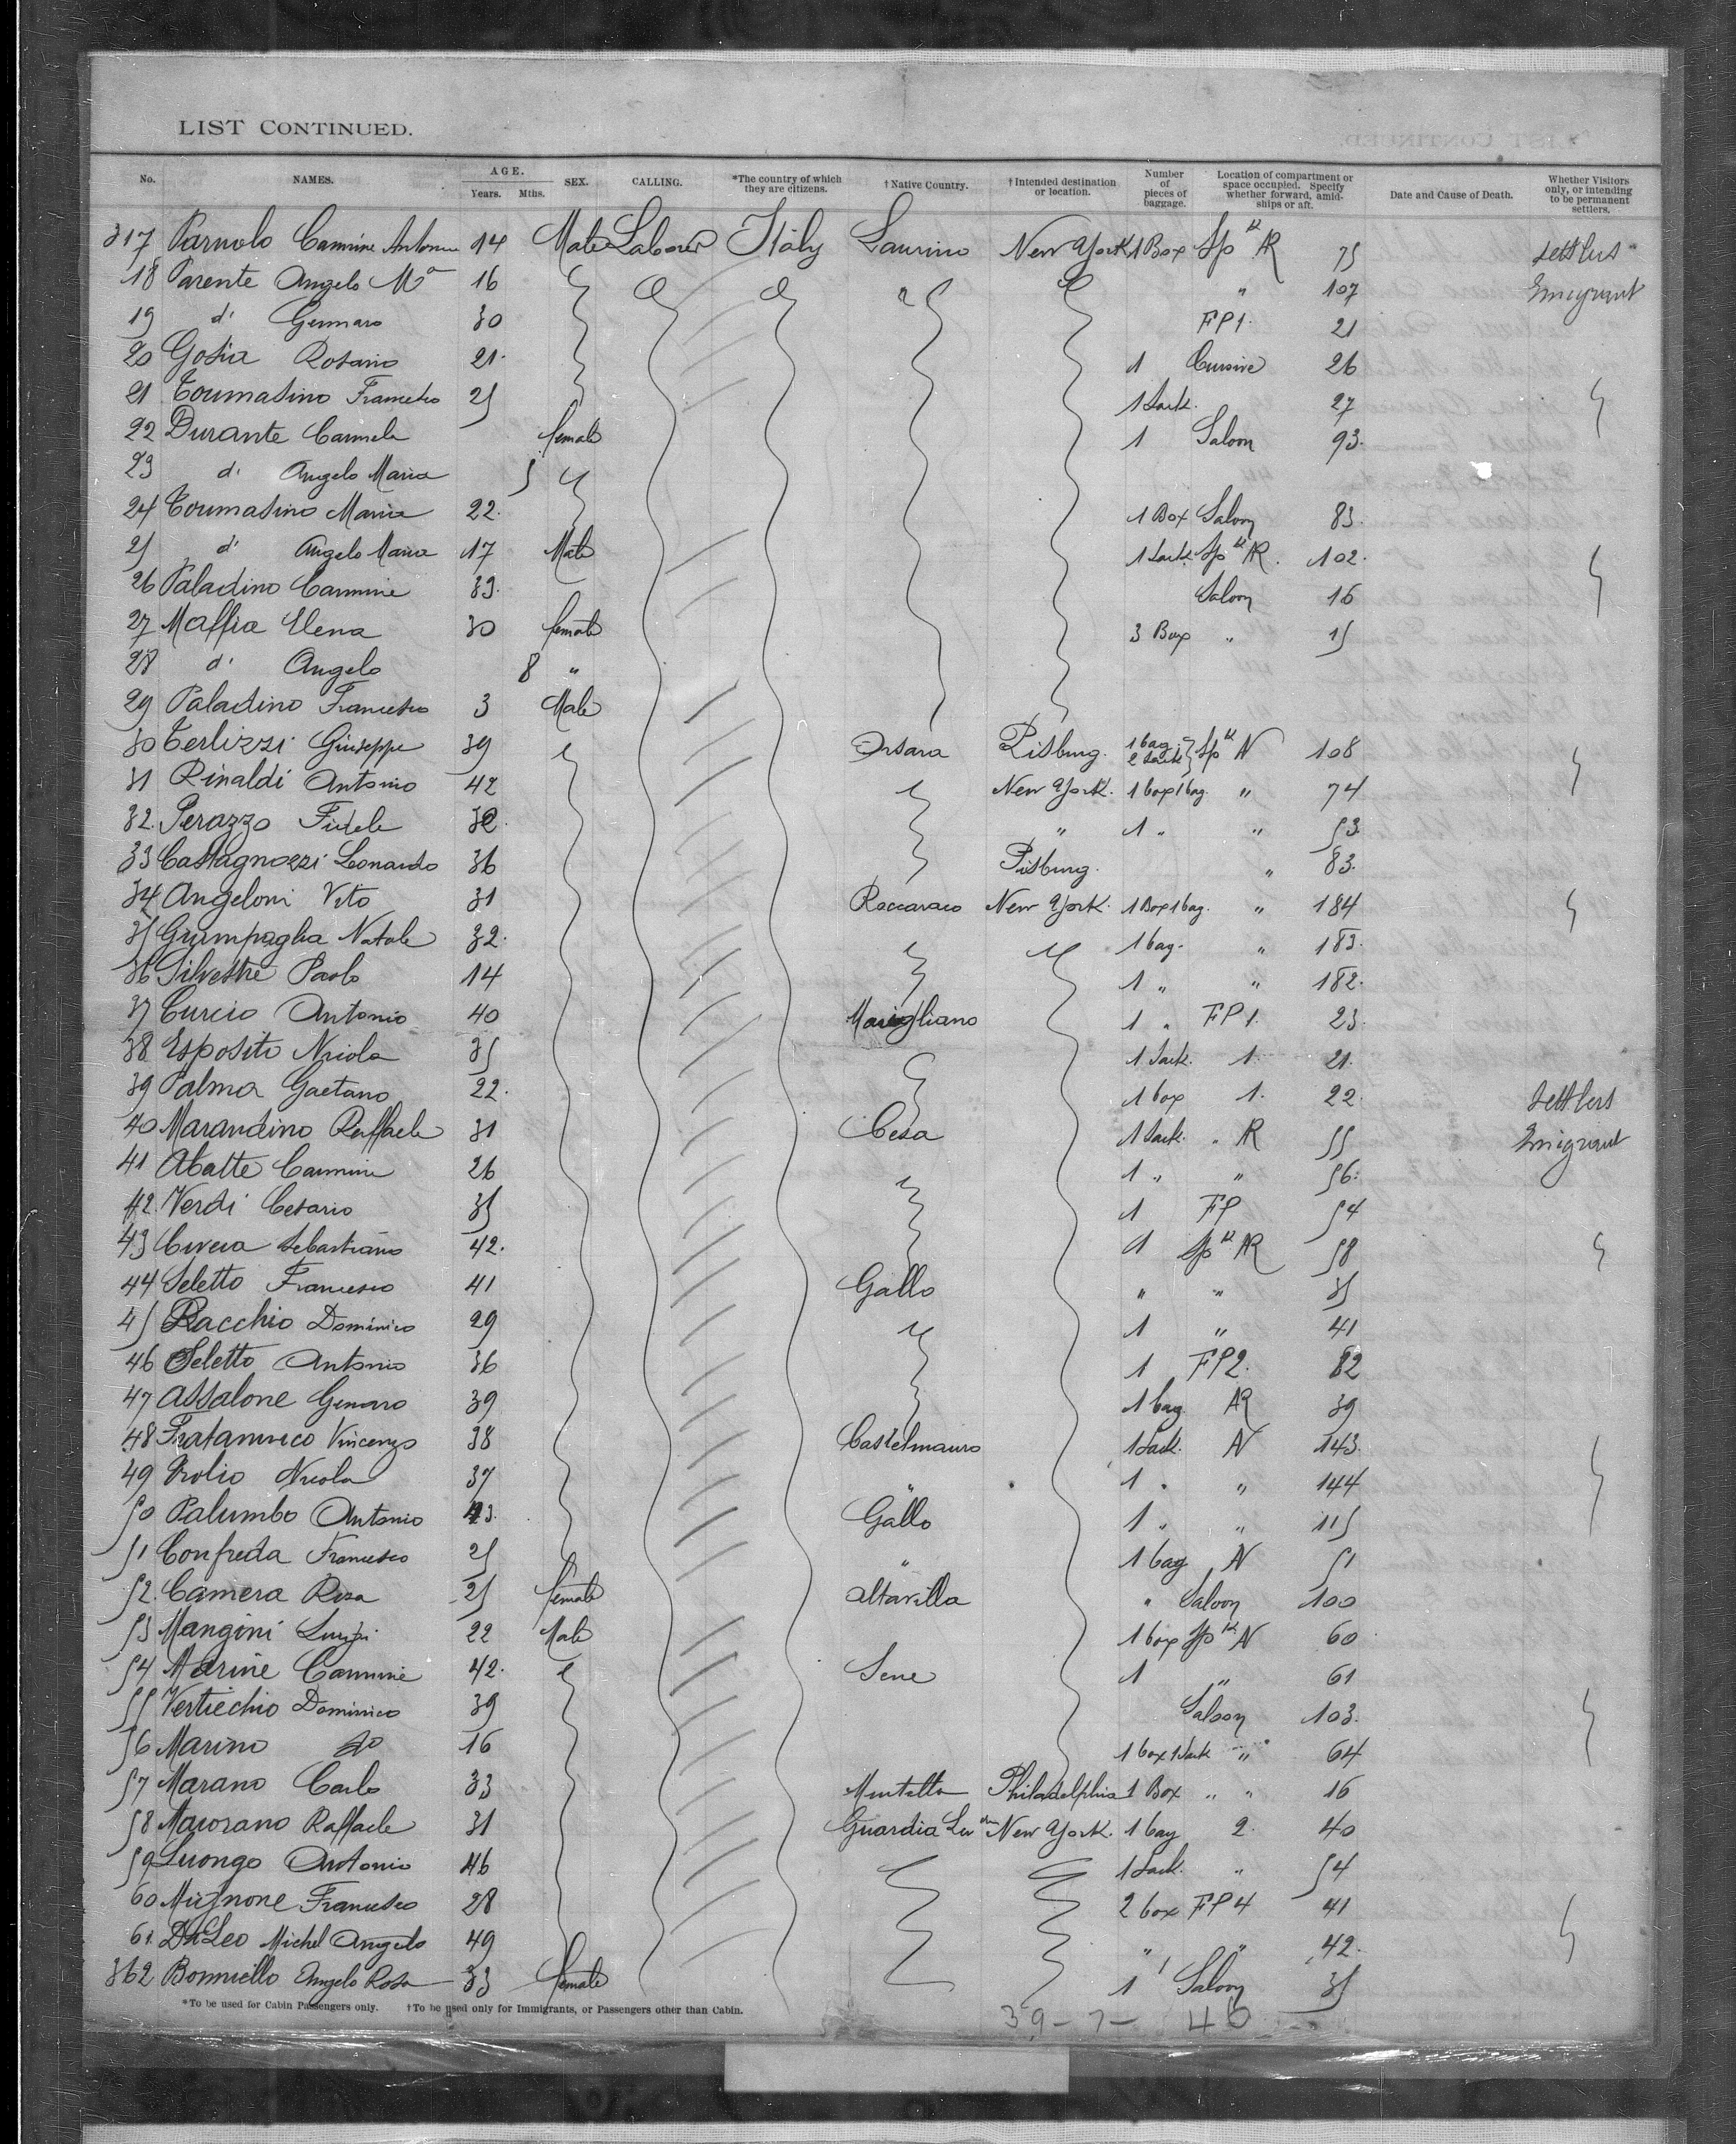 LIST CONTINUED.
No. NAMES. AGE. Years. Mths. SEX. CALLING. *The country of which they are citizens. †Native Country. †Intended destination or location. Number of pieces of baggage. Location of compartment or space occupied. Specify whether forward, amidships or aft. Date and Cause of Death. Whether Visitors only, or intending to be permanent settlers.
317 Carmine Antonio 14 Male Laborer Italy Laurino New York 1 Box 75 settlers
18 Parente Angelo Ma 16 " 107 Emigrant
19 d' Gennaro 30 FP1. 21
20 Rosario 21. 1 26
21 Toumasino Francesco 25 1 Sack. 27
22 Durante Carmela female 1 Saloon 93.
23 d' Angelo Maria 5
24 Toumasino Maria 22. 1 Box Saloon 83.
25 d' Angelo Maria 17 Male 1 Sack. 102.
26 Paladino Carmine 39. Saloon 16
27 Maffia Elena 30 female 3 Box " 15
28 d' Angelo 8 "
29 Paladino Francesco 3 Male
30 Terlizzi Giuseppe 39 Orsara Pitsburg. 1 bag 2 Sack N 108
31 Rinaldi Antonio 42 New York. 1 box 1 bag. " 74
32. Perazzo Fidele 32. " 1 " " 53
33 Castagnozzi Leonardo 36 Pitsburg. " 83.
34 Angeloni Vito 31 New York. 1 Box 1 bag. " 184
35 Natale 32. 1 bag. " 183.
36 Silvestre Paolo 14 1 " " 182.
37 Curcio Antonio 40 Marigliano 1 " FP1. 23.
38 Esposito Nicola 35 1 Sack. 1. 21.
39 Palma Gaetano 22. 1 box 1. 22. settlers
40 Marandino Raffaele 31 Cesa 1 Sack. " R 55 Emigrant
41 Abatte Carmine 26 1 " " 56.
42. Verdi Cesario 35 1 FP 54
43 Sebastiano 42. 1 58
44 Seletto Francesco 41 Gallo " " 35
45 Racchio Dominico 29 1 " 41
46 Seletto Antonio 36 1 FP2. 82
47 Assalone Genaro 39 1 bag 39
48 Vincenzo 38 Castelmauro 1 Sack. N 143.
49 Nicola 37 " 1 " " 144
50 Palumbo Antonio 43. Gallo 1 " " 115
51 Confreda Francesco 25 " 1 bag N 51
52. Camera Rosa 25 female Altavilla " Saloon 100
53 Mangini Luigi 22 Male 1 box N 60
54 Marine Carmine 42. 1 " 61
55 Vertiechio Dominico 39 Saloon 103.
56 Marino do 16 1 box 1 Sack " 64
57 Marano Carlo 33 Philadelphia 1 Box " " 16
58 Maiorano Raffaele 31 Guardia New York. 1 bag 2. 40
59 Luongo Antonio 46 1 Sack. " 54
60 Mignone Francesco 28 2 box FP4 41
61. Di Leo Michel Angelo 49 " " 42.
362 Bonniello Angelo Rosa 33 female 1 Saloon 35
*To be used for Cabin Passengers only. †To be used only for Immigrants, or Passengers other than Cabin.
39 - 7 - 46